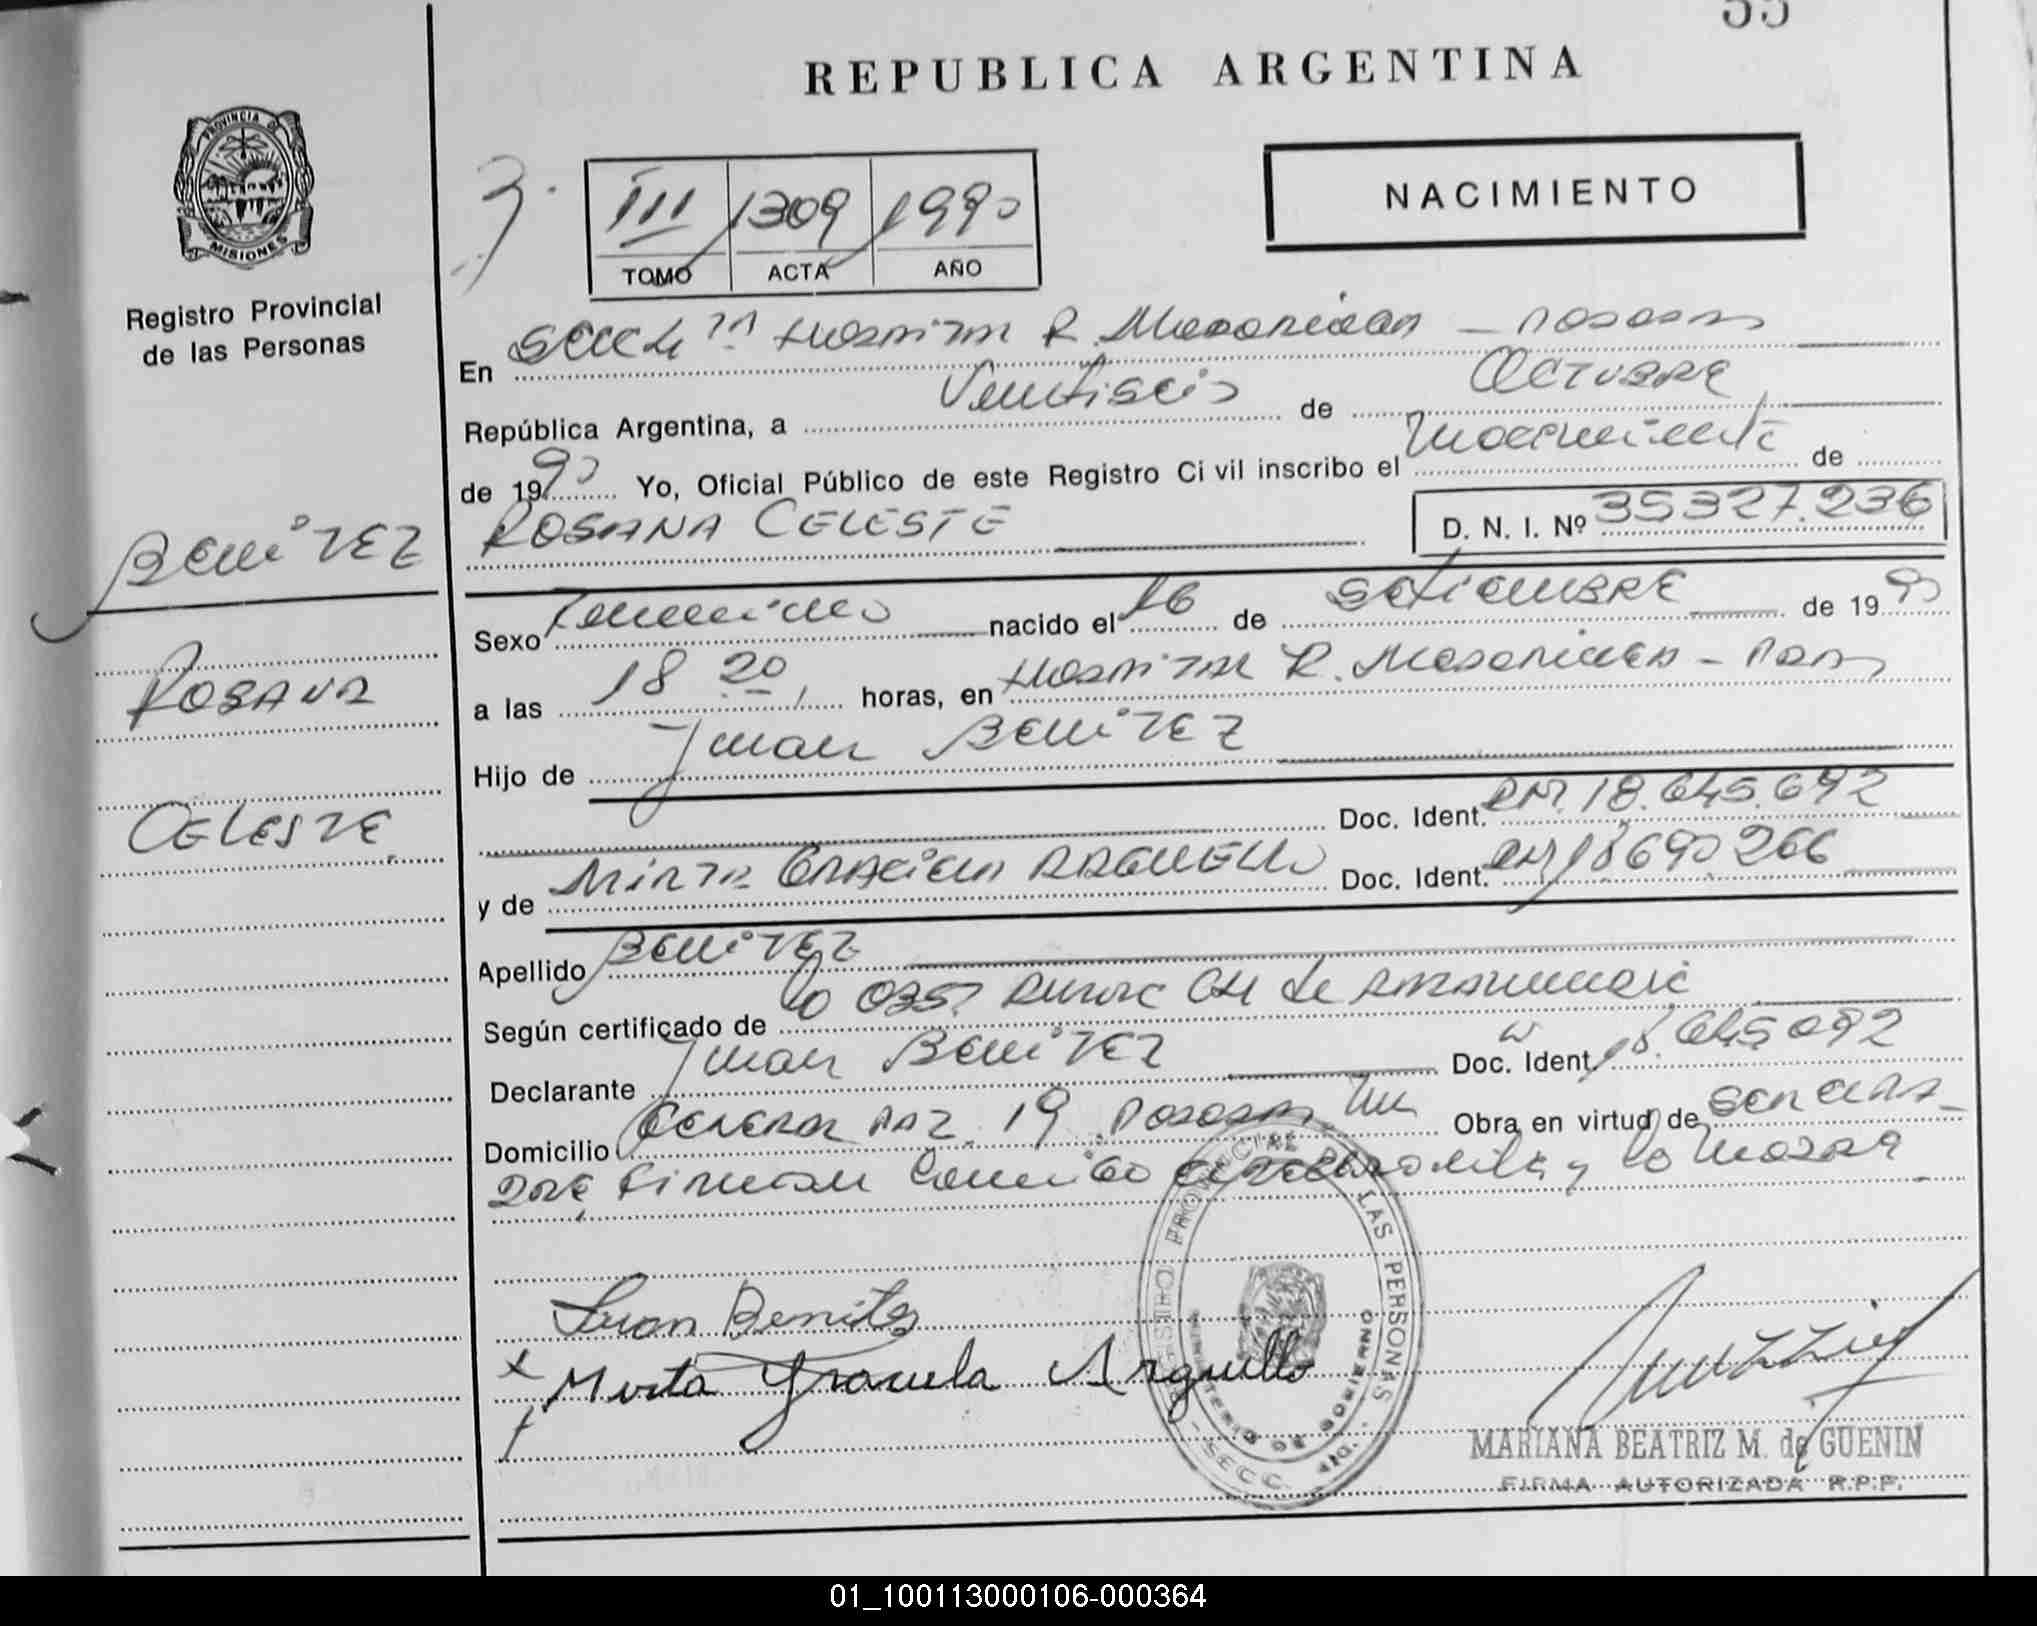 55
REPUBLICA ARGENTINA
PROVINCIA DE
MISIONES
Registro Provincial
de las Personas
III 1309 1990
TOMO ACTA AÑO
NACIMIENTO
En Secc 1ª Hospital R. Madariaga - Posadas
República Argentina, a Veintiseis de Octubre
de 1990 Yo, Oficial Público de este Registro Civil inscribo el nacimiento de
ROSANA CELESTE D. N. I. Nº 35327.236
BENITEZ
ROSANA
CELESTE
Sexo Femenino nacido el 16 de Setiembre de 1990
a las 18 20 horas, en Hospital R. Madariaga - Pdas
Hijo de Juan BENITEZ
Doc. Ident. DNI. 18.645.692
y de Mirta Graciela ARGUELLO Doc. Ident. DNI 18690266
Apellido BENITEZ
Según certificado de
Declarante Juan BENITEZ Doc. Ident. 18.645.092
Domicilio General Paz 19 Posadas Mnes Obra en virtud de ser el
padre firman conmigo el y la madre
Juan Benitez
x Mirta Graciela Arguello
REGISTRO PROVINCIAL DE LAS PERSONAS
MINISTERIO DE GOBIERNO
SECC.
MARIANA BEATRIZ M. de GUENIN
FIRMA AUTORIZADA R.P.P.
01_100113000106-000364